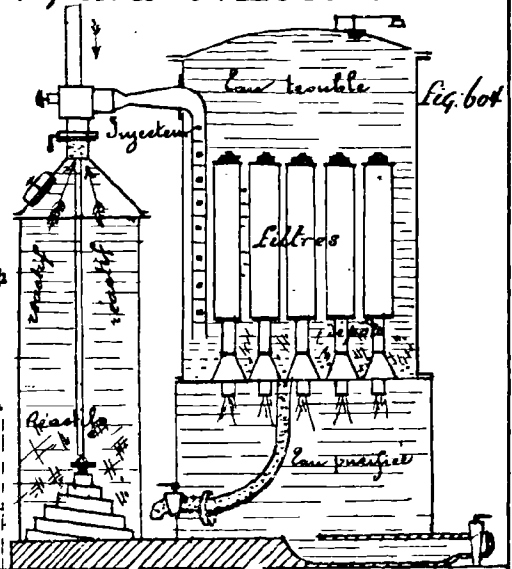 Eau trouble
fig. 604
Injecteur
filtres
réactif
réactif
Dépots
Réactifs
Eau purifiée